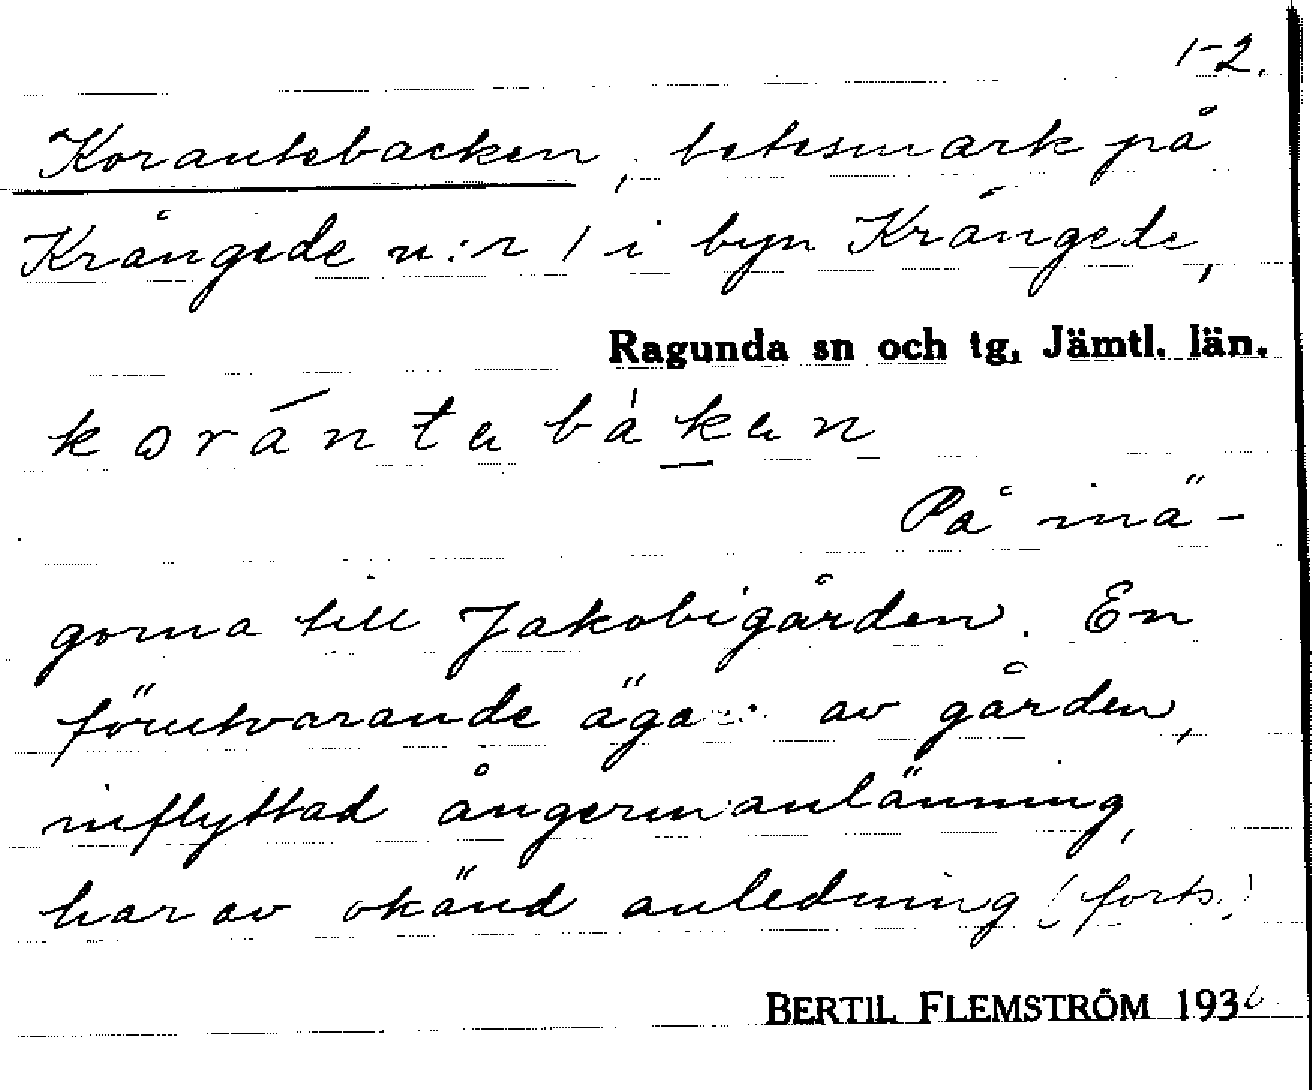 1-2.
Korantebacken, betesmark på
Krångede n:r 1 i byn Krångede,
Ragunda sn och tg, Jämtl. län.
korántabákan
På inä-
gorna till Jakobigården. En
förutvarande ägare av gården,
inflyttad ångermanlänning,
har av okänd anledning (forts.)
BERTIL FLEMSTRÖM 1936